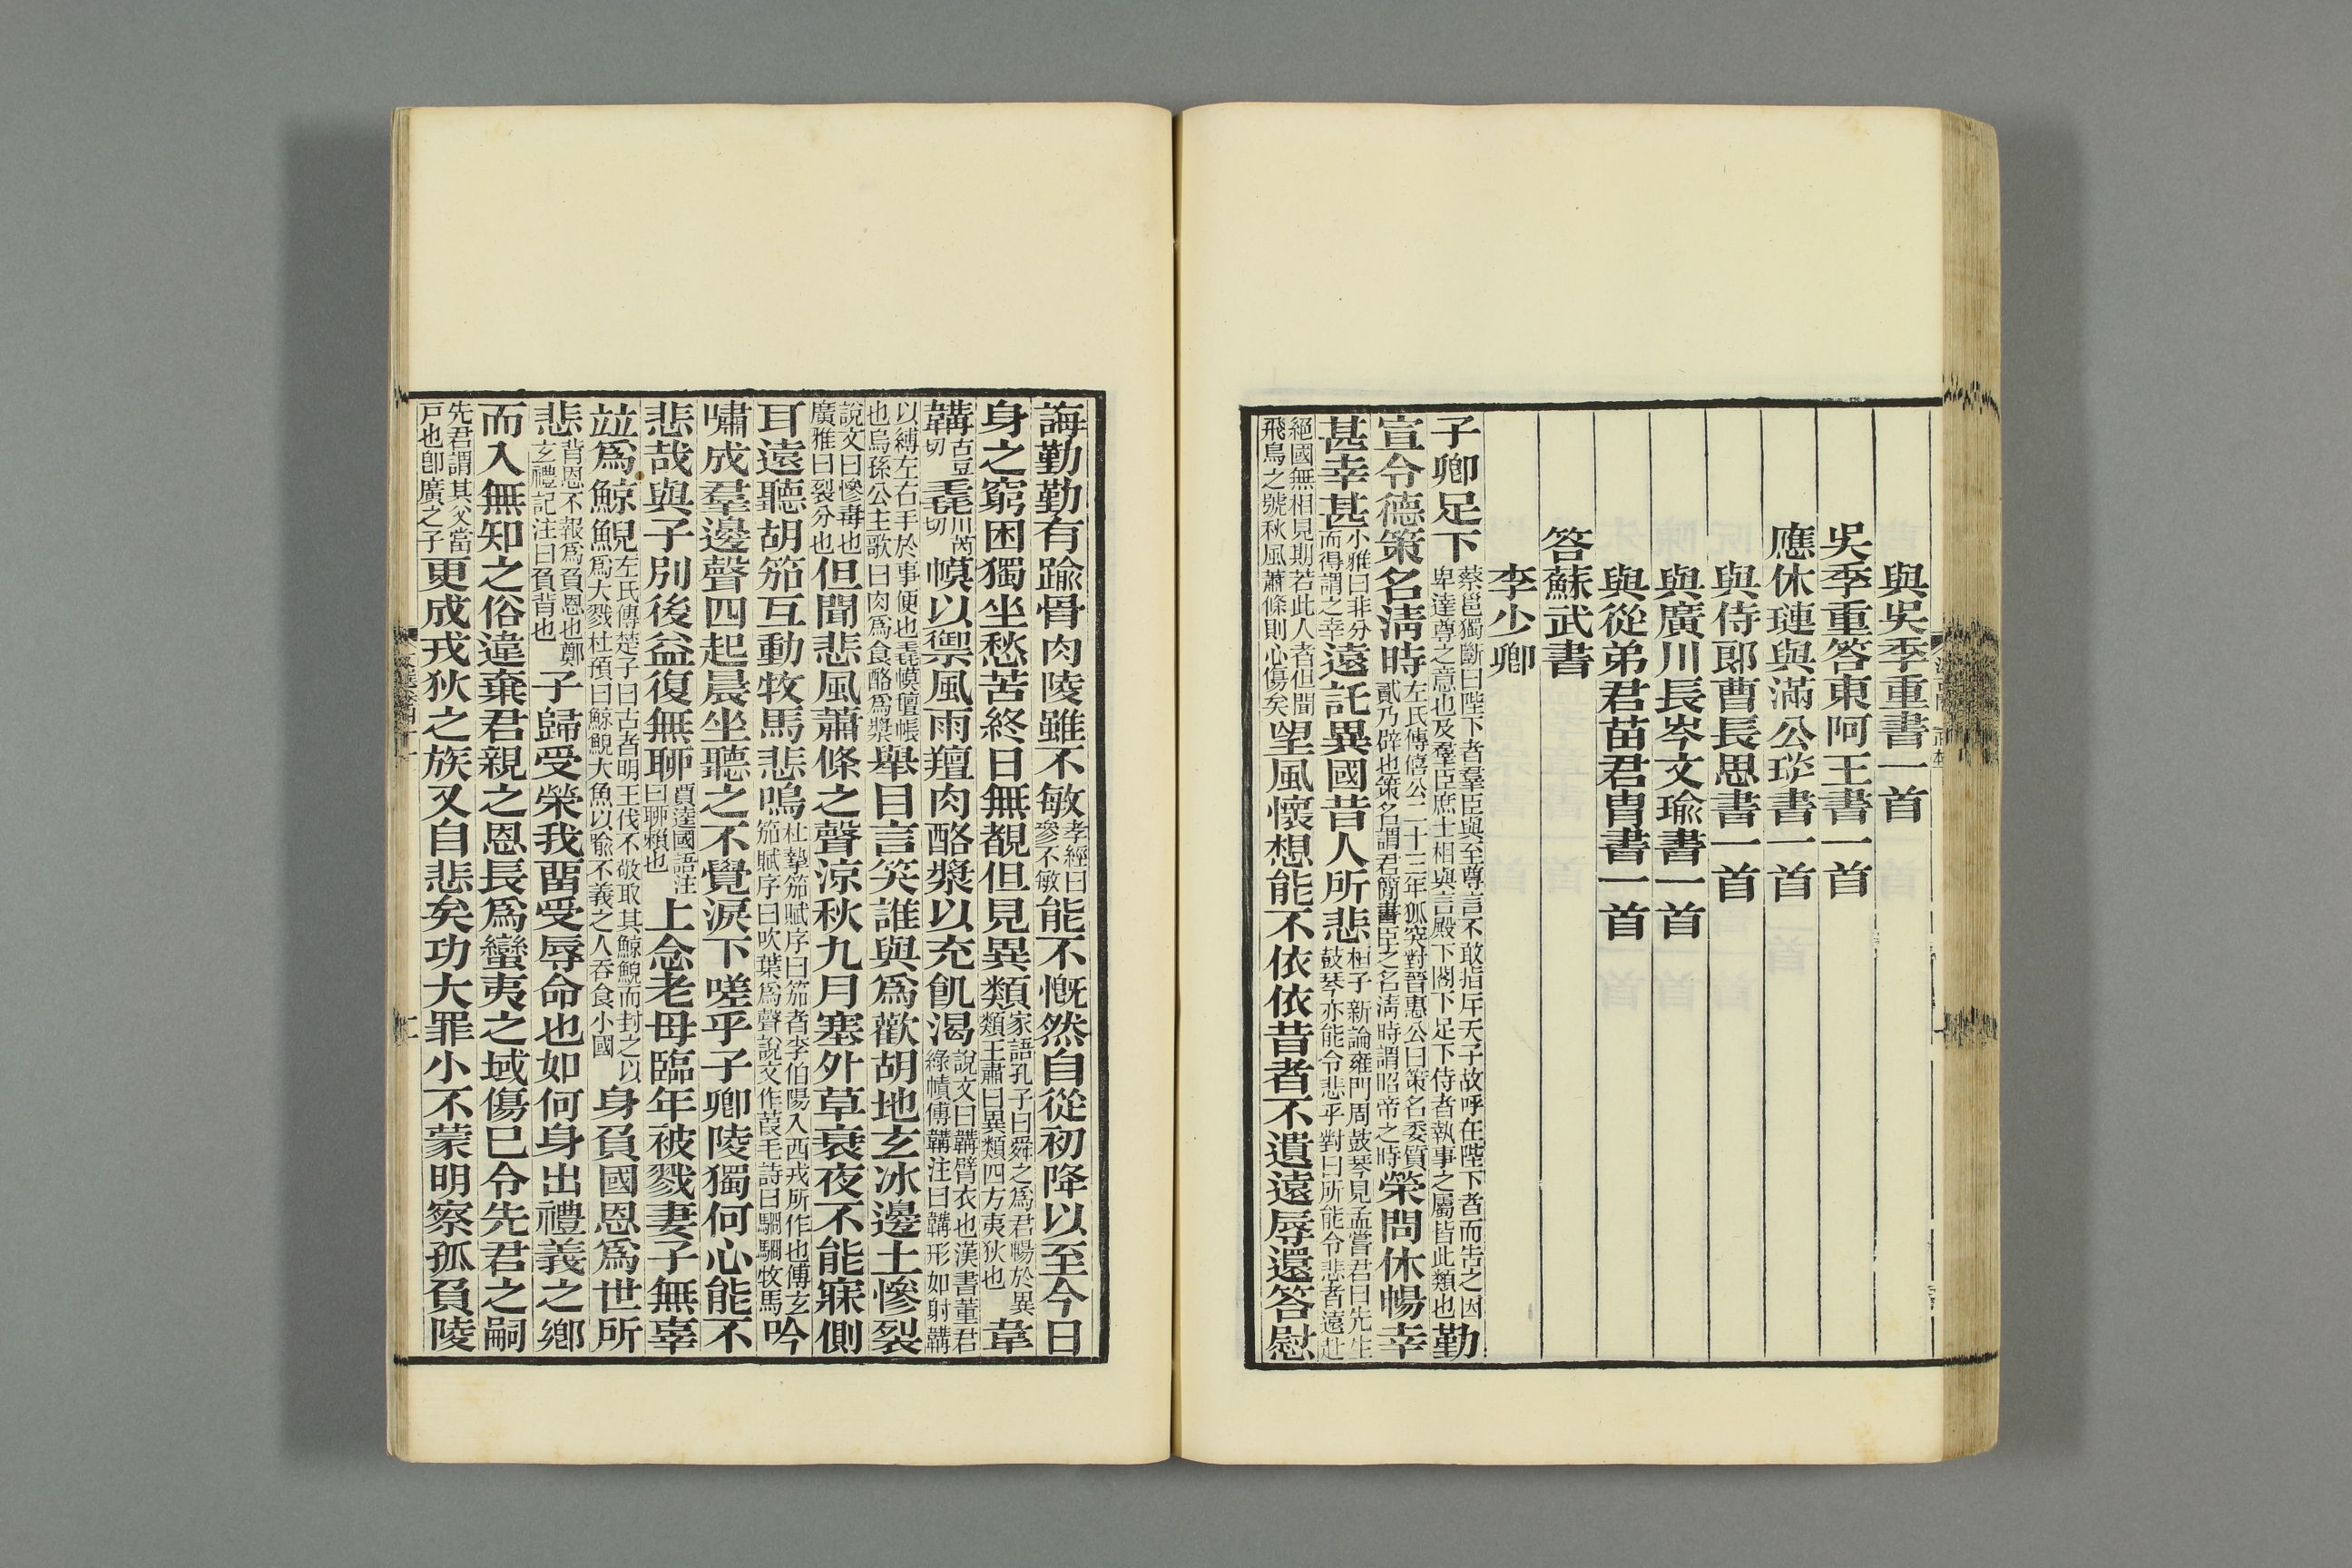 與吳季重書一首
吳季重答東阿王書一首
應休璉與滿公琰書一首
與侍郎曹長思書一首
與廣川長岑文瑜書一首
與從弟君苗君冑書一首
答蘇武書
李少卿
子卿足下蔡邕獨斷曰陛下者羣臣與至尊言不敢指斥天子故呼在陛下者而告之因卑達尊之意也及羣臣庶士相與言殿下閣下足下侍者執事之屬皆此類也勤
宣令德策名清時左氏傳僖公二十三年狐突對晉惠公曰策名委質貳乃辟也策名謂君簡書臣之名清時謂昭帝之時榮問休暢幸
甚幸甚小雅曰非分而得謂之幸遠託異國昔人所悲桓子新論雍門周鼓琴見孟嘗君曰先生鼓琴亦能令悲乎對曰所能令悲者遠赴
絕國無相見期若此人者但聞飛鳥之號秋風蕭條則心傷矣望風懷想能不依依昔者不遺遠辱還答慰
誨勤勤有踰骨肉陵雖不敏孝經曰參不敏能不慨然自從初降以至今日
身之窮困獨坐愁苦終日無覩但見異類家語孔子曰舜之為君暢於異類王肅曰異類四方夷狄也韋
韝古豆切毳川芮切幙以禦風雨羶肉酪漿以充飢渴說文曰韝臂衣也漢書董君綠幘傅韝注曰韝形如射韝
以縛左右手於事便也毳幙氊帳也烏孫公主歌曰肉為食酪為漿舉目言笑誰與爲歡胡地玄冰邊土慘裂
說文曰慘毒也廣雅曰裂分也但聞悲風蕭條之聲涼秋九月塞外草衰夜不能寐側
耳遠聽胡笳互動牧馬悲鳴杜摯笳賦序曰笳者李伯陽入西戎所作也傅玄笳賦序曰吹葉爲聲說文作葭毛詩曰駉駉牧馬吟
嘯成羣邊聲四起晨坐聽之不覺淚下嗟乎子卿陵獨何心能不
悲哉與子別後益復無聊賈逵國語注曰聊賴也上念老母臨年被戮妻子無辜
竝爲鯨鯢左氏傳楚子曰古者明王伐不敬取其鯨鯢而封之以爲大戮杜預曰鯨鯢大魚以喻不義之人吞食小國身負國恩爲世所
悲背恩不報爲負恩也鄭玄禮記注曰負背也子歸受榮我畱受辱命也如何身出禮義之鄉
而入無知之俗違棄君親之恩長爲蠻夷之域傷已令先君之嗣
先君謂其父當戸也卽廣之子更成戎狄之族又自悲矣功大罪小不蒙明察孤負陵
文選卷四十一
二